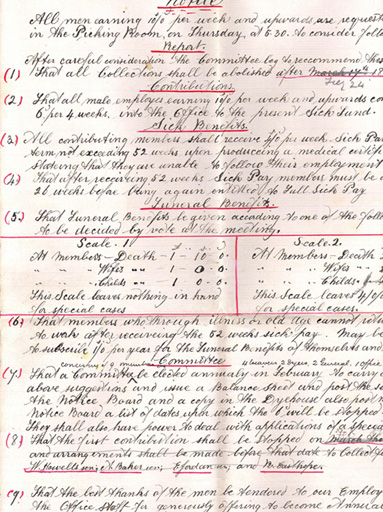 Notice
All men earning 10/- per week and upwards, are request
in the Picking Room, on Thursday, at 5.30. To consider follo
Report.
After careful consideration the Committee beg to recommend thes
(1) That all Collections shall be abolished after March 17th 18
Feby 24
Contributions
(2) That all male employes earning 10/- per week and upwards co
6 per 4 weeks, into the Office to the present Sick Fund.
Sick Benefits.
(3) All contributing members shall receive 10/- per week. Sick Pay
term not exceeding 52 weeks upon producing a medical certif
stating that they are unable to follow their employment
(4) That after receiving 52 weeks Sick Pay members must be o
26 weeks before being again entitled to Full Sick Pay
Funeral Benefits.
(5) That Funeral Benefits be given according to one of the follo
to be decided by vote at the meeting.
Scale. 1 Scale. 2.
At Members - Death - 1 - 10 - 0. At Members - Death
" " Wifes " 1 0 0. " " Wifes
" " Childs " 1 0 0. " " Childs.
This Scale leaves nothing in hand This Scale leaves
for special cases for special cases.
(6) That members who through illness or old age cannot retur
to work after receiving the 52 weeks sick pay. May be
to subscribe 1/- per year for the Funeral Benefits of themselves and
Committee
(7) That a Committee be elected annually in February to carry
above suggestions and issue a Balance Sheet and post the sa
the Notice Board and a copy in the Dyehouse also post
Notice Board a list of dates upon which the will be stopped
They shall also have power to deal with applications of a special
(8) That the first contribution shall be stopped on March
and arrangements shall be made before that date to collect fo
W. Howells sen; A. Baker sen; E. Jordan and
(9) That the best thanks of the men be tendered to our Employ
the Office Staff for generously offering to become Annual